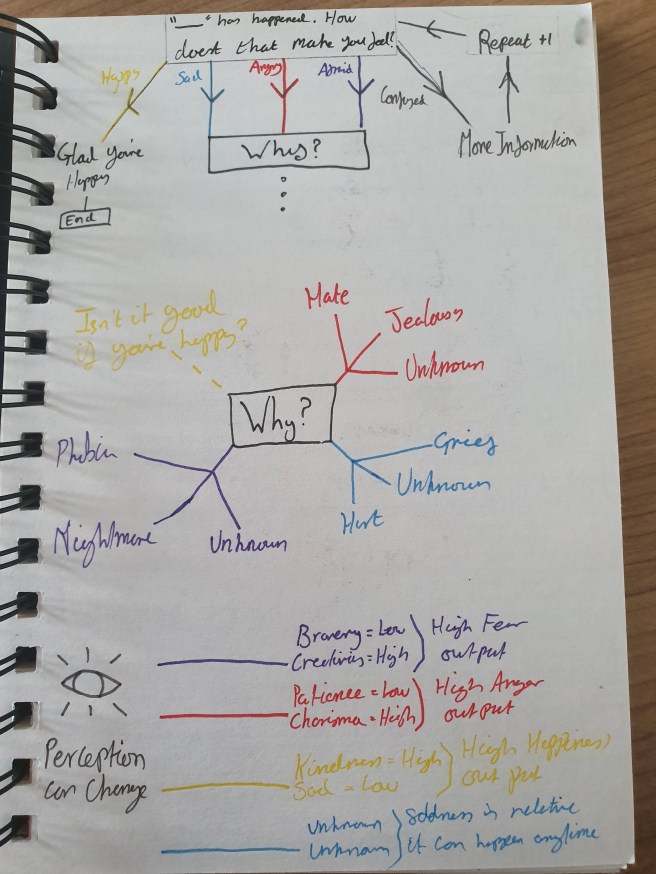 "___" has happened. How
doest that make you feel?
Repeat +1
Happy
Sad
Angry
Afraid
Confused
More Information
Glad you're
Happy
End
Why?
Isn't it good
if you're happy?
Hate
Jealousy
Unknown
Why?
Phobia
Nightmare
Unknown
Grief
Unknown
Hurt
Bravery = Low
Creativity = High
High Fear
output
Patience = Low
Charisma = High
High Anger
output
Perception
can Change
Kindness = High
Sad = Low
High Happiness
out put
Unknown
Unknown
Saddness is relative
it can happen anytime